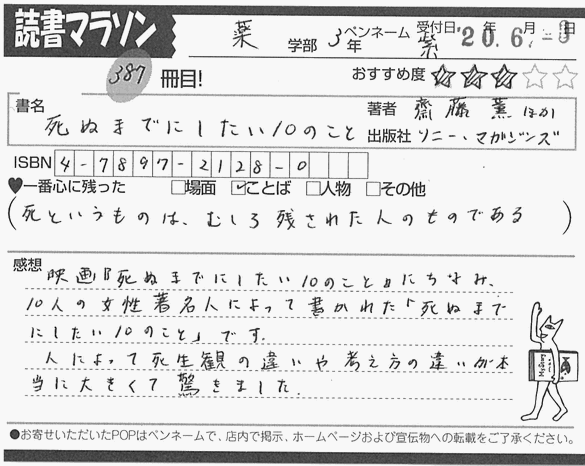 読書マラソン
薬 学部 3年 ペンネーム 紫 受付日 20年6月-8日
387 冊目! おすすめ度 ★★★☆☆
書名 死ぬまでにしたい10のこと 著者 齋藤薫ほか
出版社 ソニー・マガジンズ
ISBN 4-7897-2128-0
♥一番心に残った □場面 ☑ことば □人物 □その他
(死というものは、むしろ残された人のものである)
感想
映画『死ぬまでにしたい10のこと』にちなみ、
10人の女性著名人によって書かれた「死ぬまで
にしたい10のこと」です。
人によって死生観の違いや考え方の違いが本
当に大きくて驚きました。
●お寄せいただいたPOPはペンネームで、店内で掲示、ホームページおよび宣伝物への転載をご了承ください。